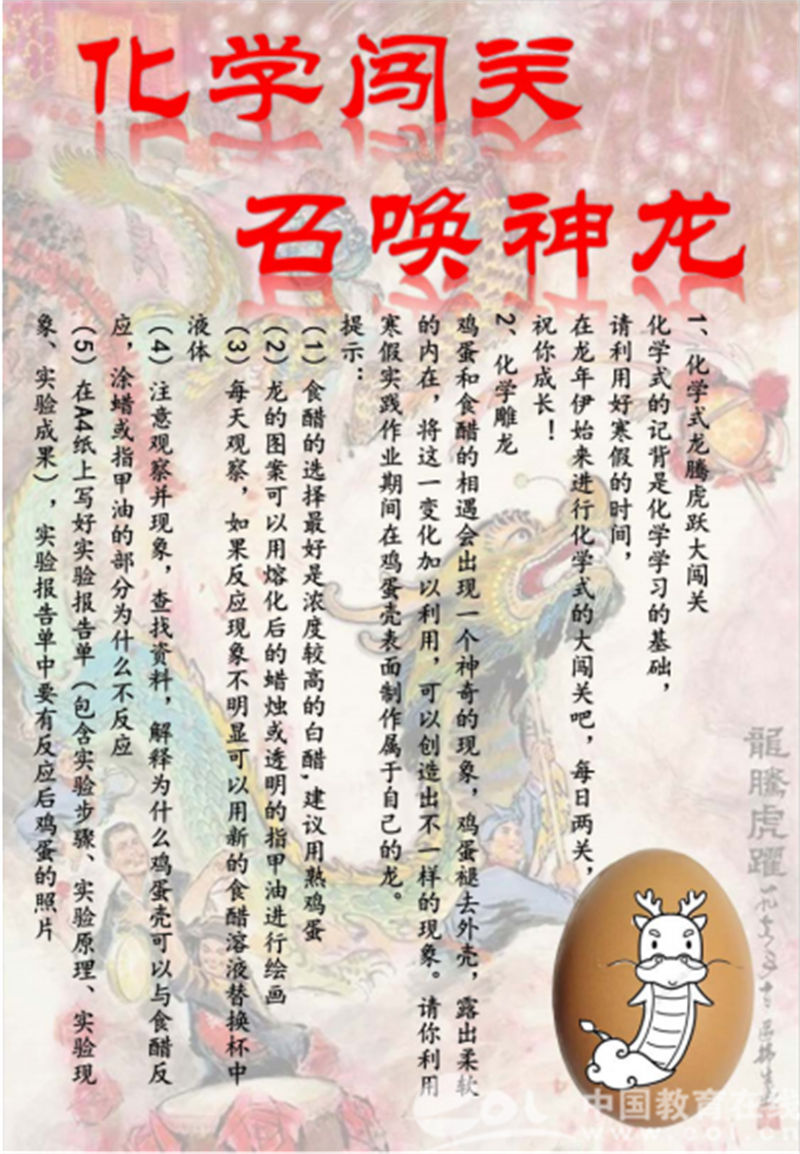 化学闯关
召唤神龙
1、化学式龙腾虎跃大闯关
化学式的记背是化学学习的基础，
请利用好寒假的时间，
在龙年伊始来进行化学式的大闯关吧，每日两关，
祝你成长！
2、化学雕龙
鸡蛋和食醋的相遇会出现一个神奇的现象，鸡蛋褪去外壳，露出柔软
的内在，将这一变化加以利用，可以创造出不一样的现象。请你利用
寒假实践作业期间在鸡蛋壳表面制作属于自己的龙。
提示：
（1）食醋的选择最好是浓度较高的白醋，建议用熟鸡蛋
（2）龙的图案可以用熔化后的蜡烛或透明的指甲油进行绘画
（3）每天观察，如果反应现象不明显可以用新的食醋溶液替换杯中
液体
（4）注意观察并现象，查找资料，解释为什么鸡蛋壳可以与食醋反
应，涂蜡或指甲油的部分为什么不反应
（5）在A4纸上写好实验报告单（包含实验步骤、实验原理、实验现
象、实验成果），实验报告单中要有反应后鸡蛋的照片
龍騰虎躍
eol 中国教育在线
www.eol.cn